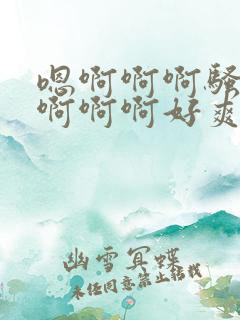 嗯啊啊啊骚
啊啊啊好爽
幽雪冥蝶
未经同意禁止转载